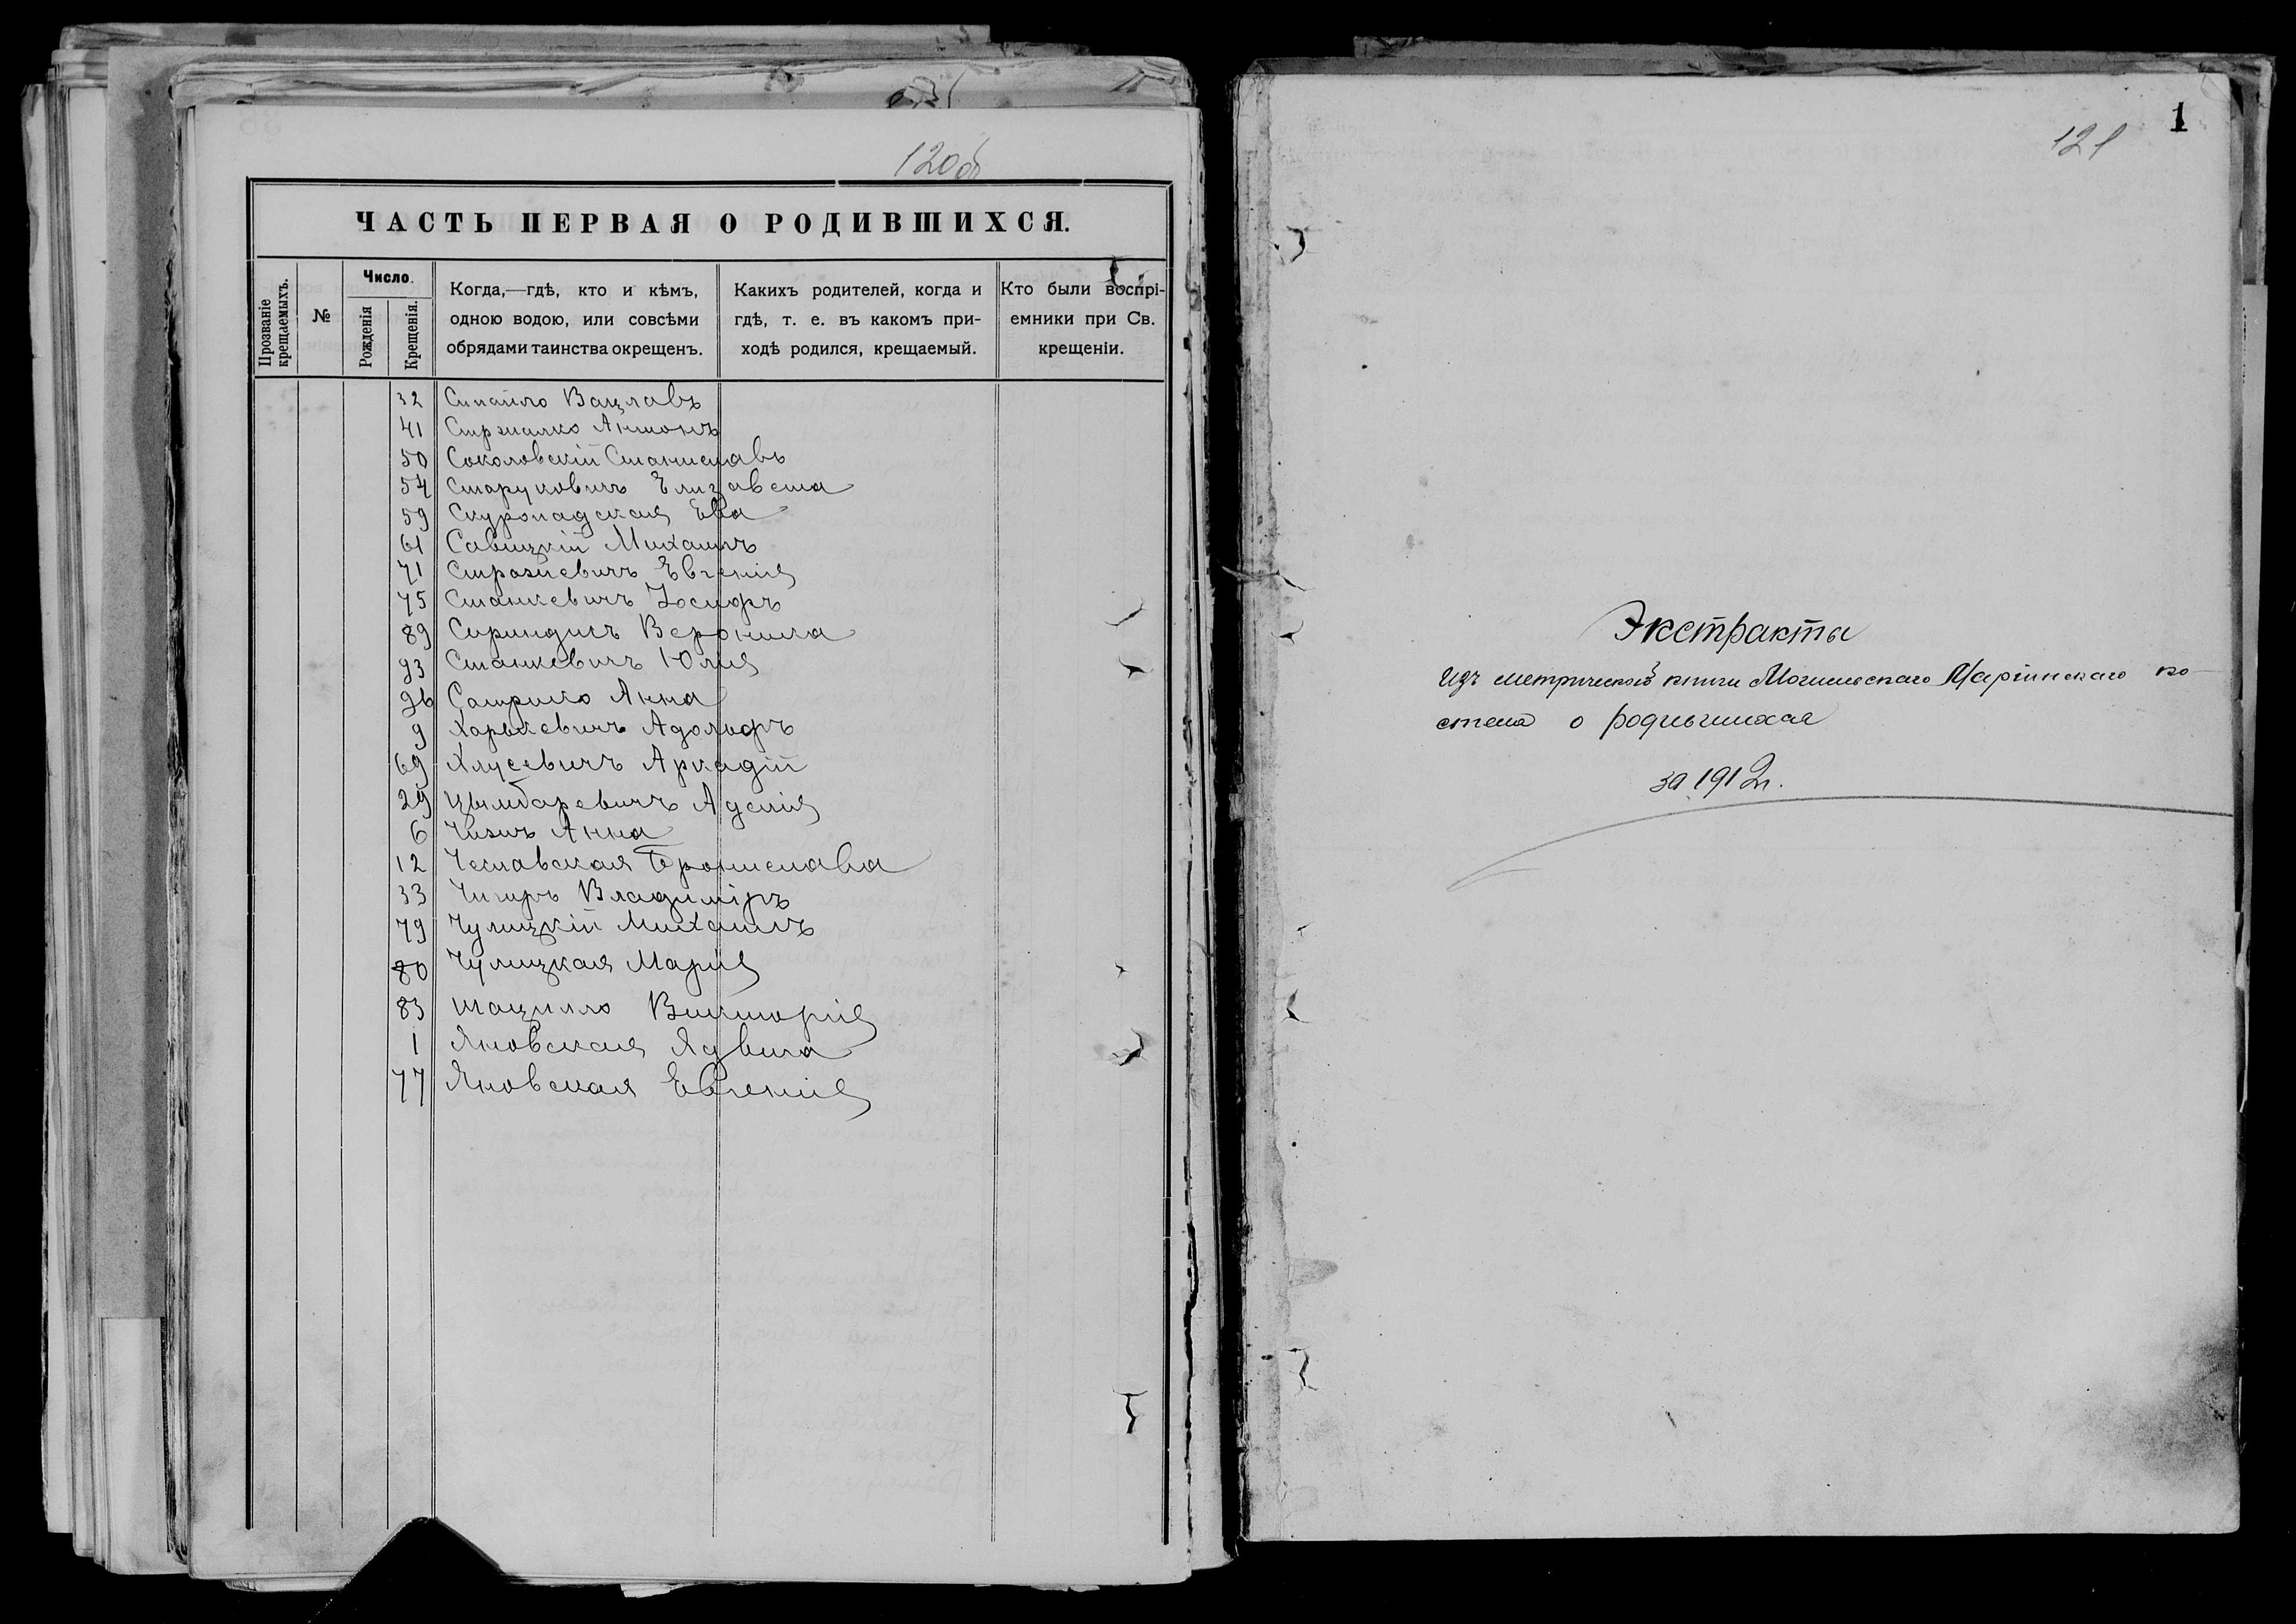 120об
ЧАСТЬ ПЕРВАЯ О РОДИВШИХСЯ.
Прозваніе крещаемыхъ.
№
Число.
Рожденія
Крещенія.
Когда,—гдѣ, кто и кѣмъ,
одною водою, или совсѣми
обрядами таинства окрещенъ.
Какихъ родителей, когда и
гдѣ, т. е. въ какомъ при-
ходѣ родился, крещаемый.
Кто были воспрі-
емники при Св.
крещеніи.
32 Вацлавъ
41 Антонъ
50 Соколовскій Станиславъ
54 Старуковичъ Елизавета
59 Скуропадская Ева
61 Савицкій Михаилъ
71 Евгенія
75 Станкевичъ Іосифъ
89 Вероника
93 Станкевичъ Юлія
96 Анна
9 Харкевичъ Адольфъ
69 Хлусевичъ Аркадій
29 Цымбаревичъ Аделія
6 Чизъ Анна
12 Чеславская Бронислава
33 Чигиръ Владиміръ
79 Чулицкій Михаилъ
80 Чулицкая Марія
83 Шацилло Викторія
1 Яновская Ядвига
77 Яновская Евгенія
1
121
Экстракты
Изъ метрической книги Могилевскаго Маріинскаго ко-
стела о родившихся
за 1912 г.